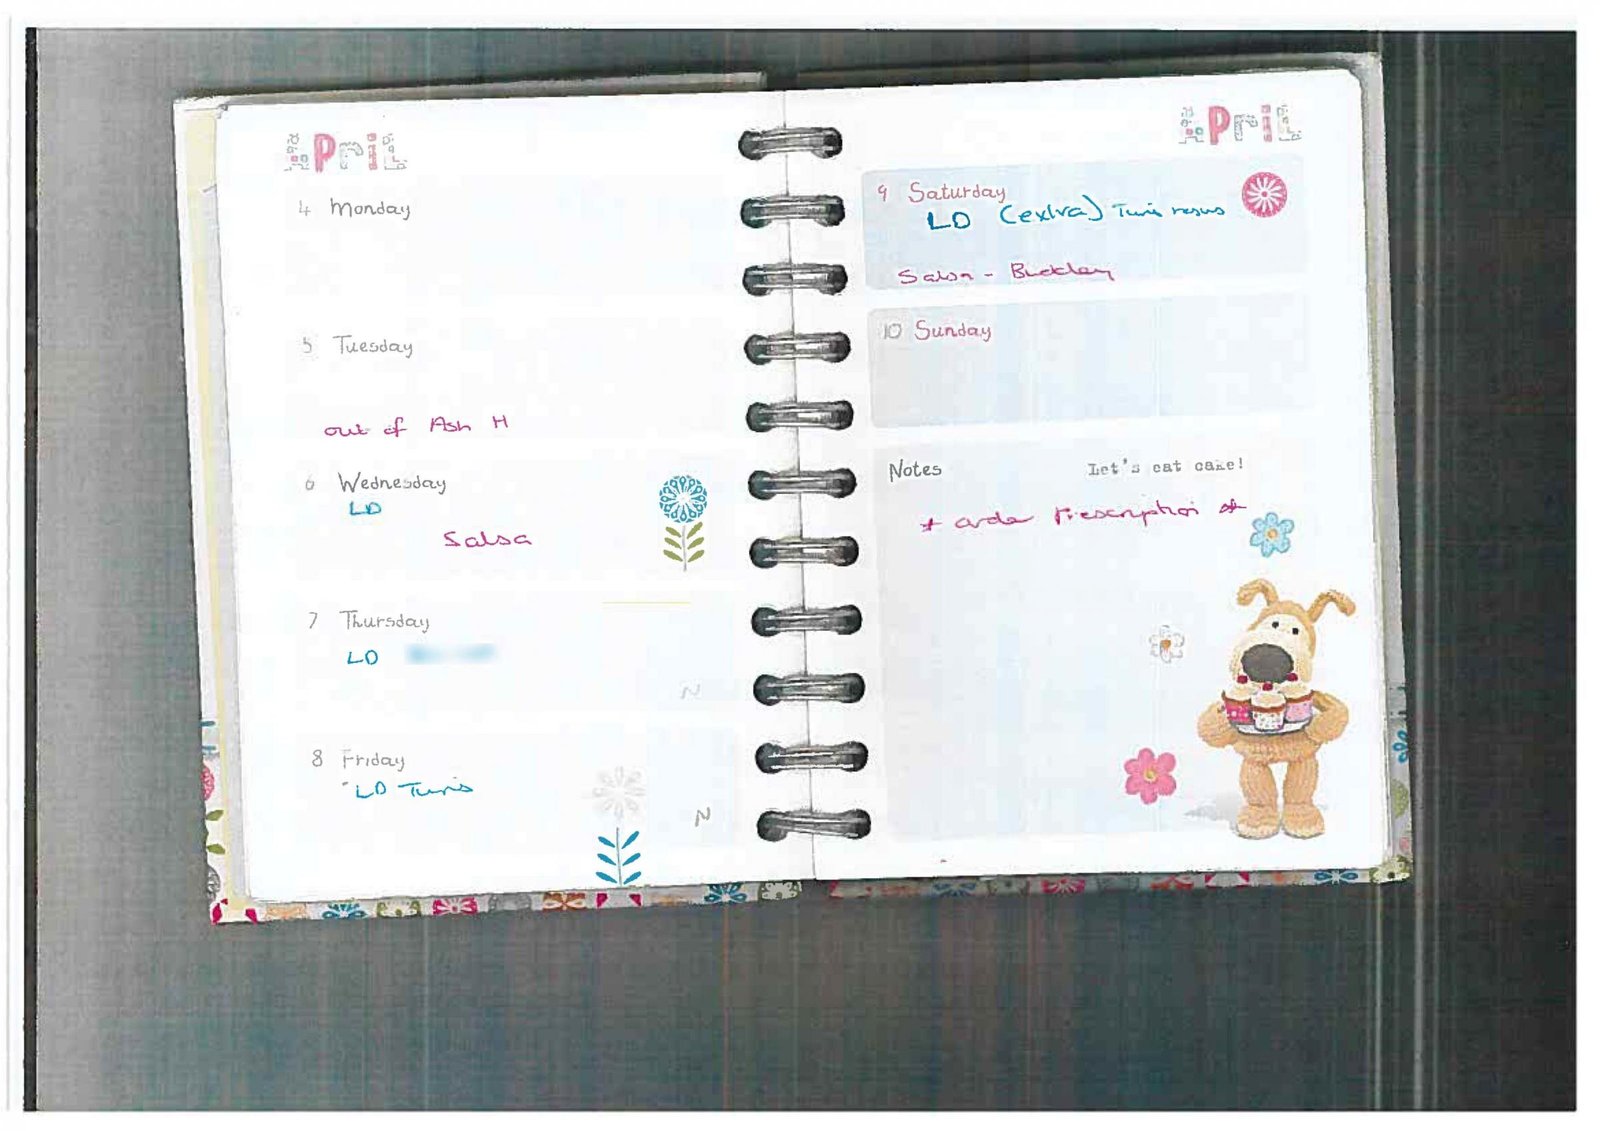 April
4 Monday
5 Tuesday
out of Ash H
6 Wednesday
LD
Salsa
7 Thursday
LD
N
8 Friday
LD Twins
N
April
9 Saturday
LD (extra) Twins resus
Salsa - Buckley
10 Sunday
Notes
Let's eat cake!
* order Prescription *